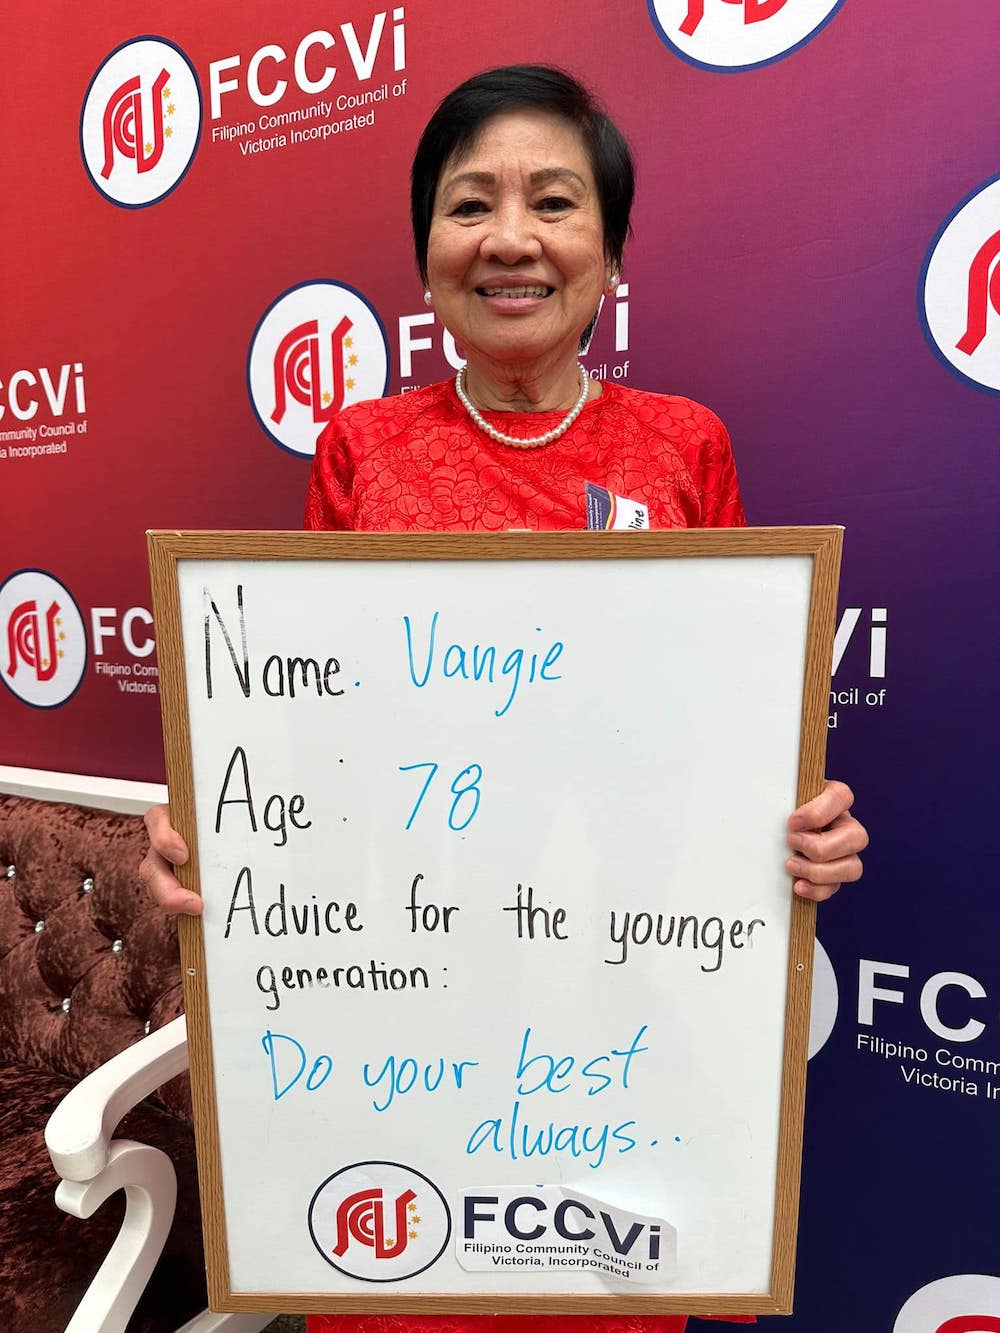 FCCVi
Filipino Community Council of
Victoria Incorporated
CCVi
mmunity Council of
a Incorporated
F
cil of
line
Name: Vangie
Age: 78
Advice for the younger
generation:
Do your best
always..
FCCVi
Filipino Community Council of
Victoria, Incorporated
FC
Filipino Com
Victoria
Vi
ncil of
d
FC
Filipino Comm
Victoria In